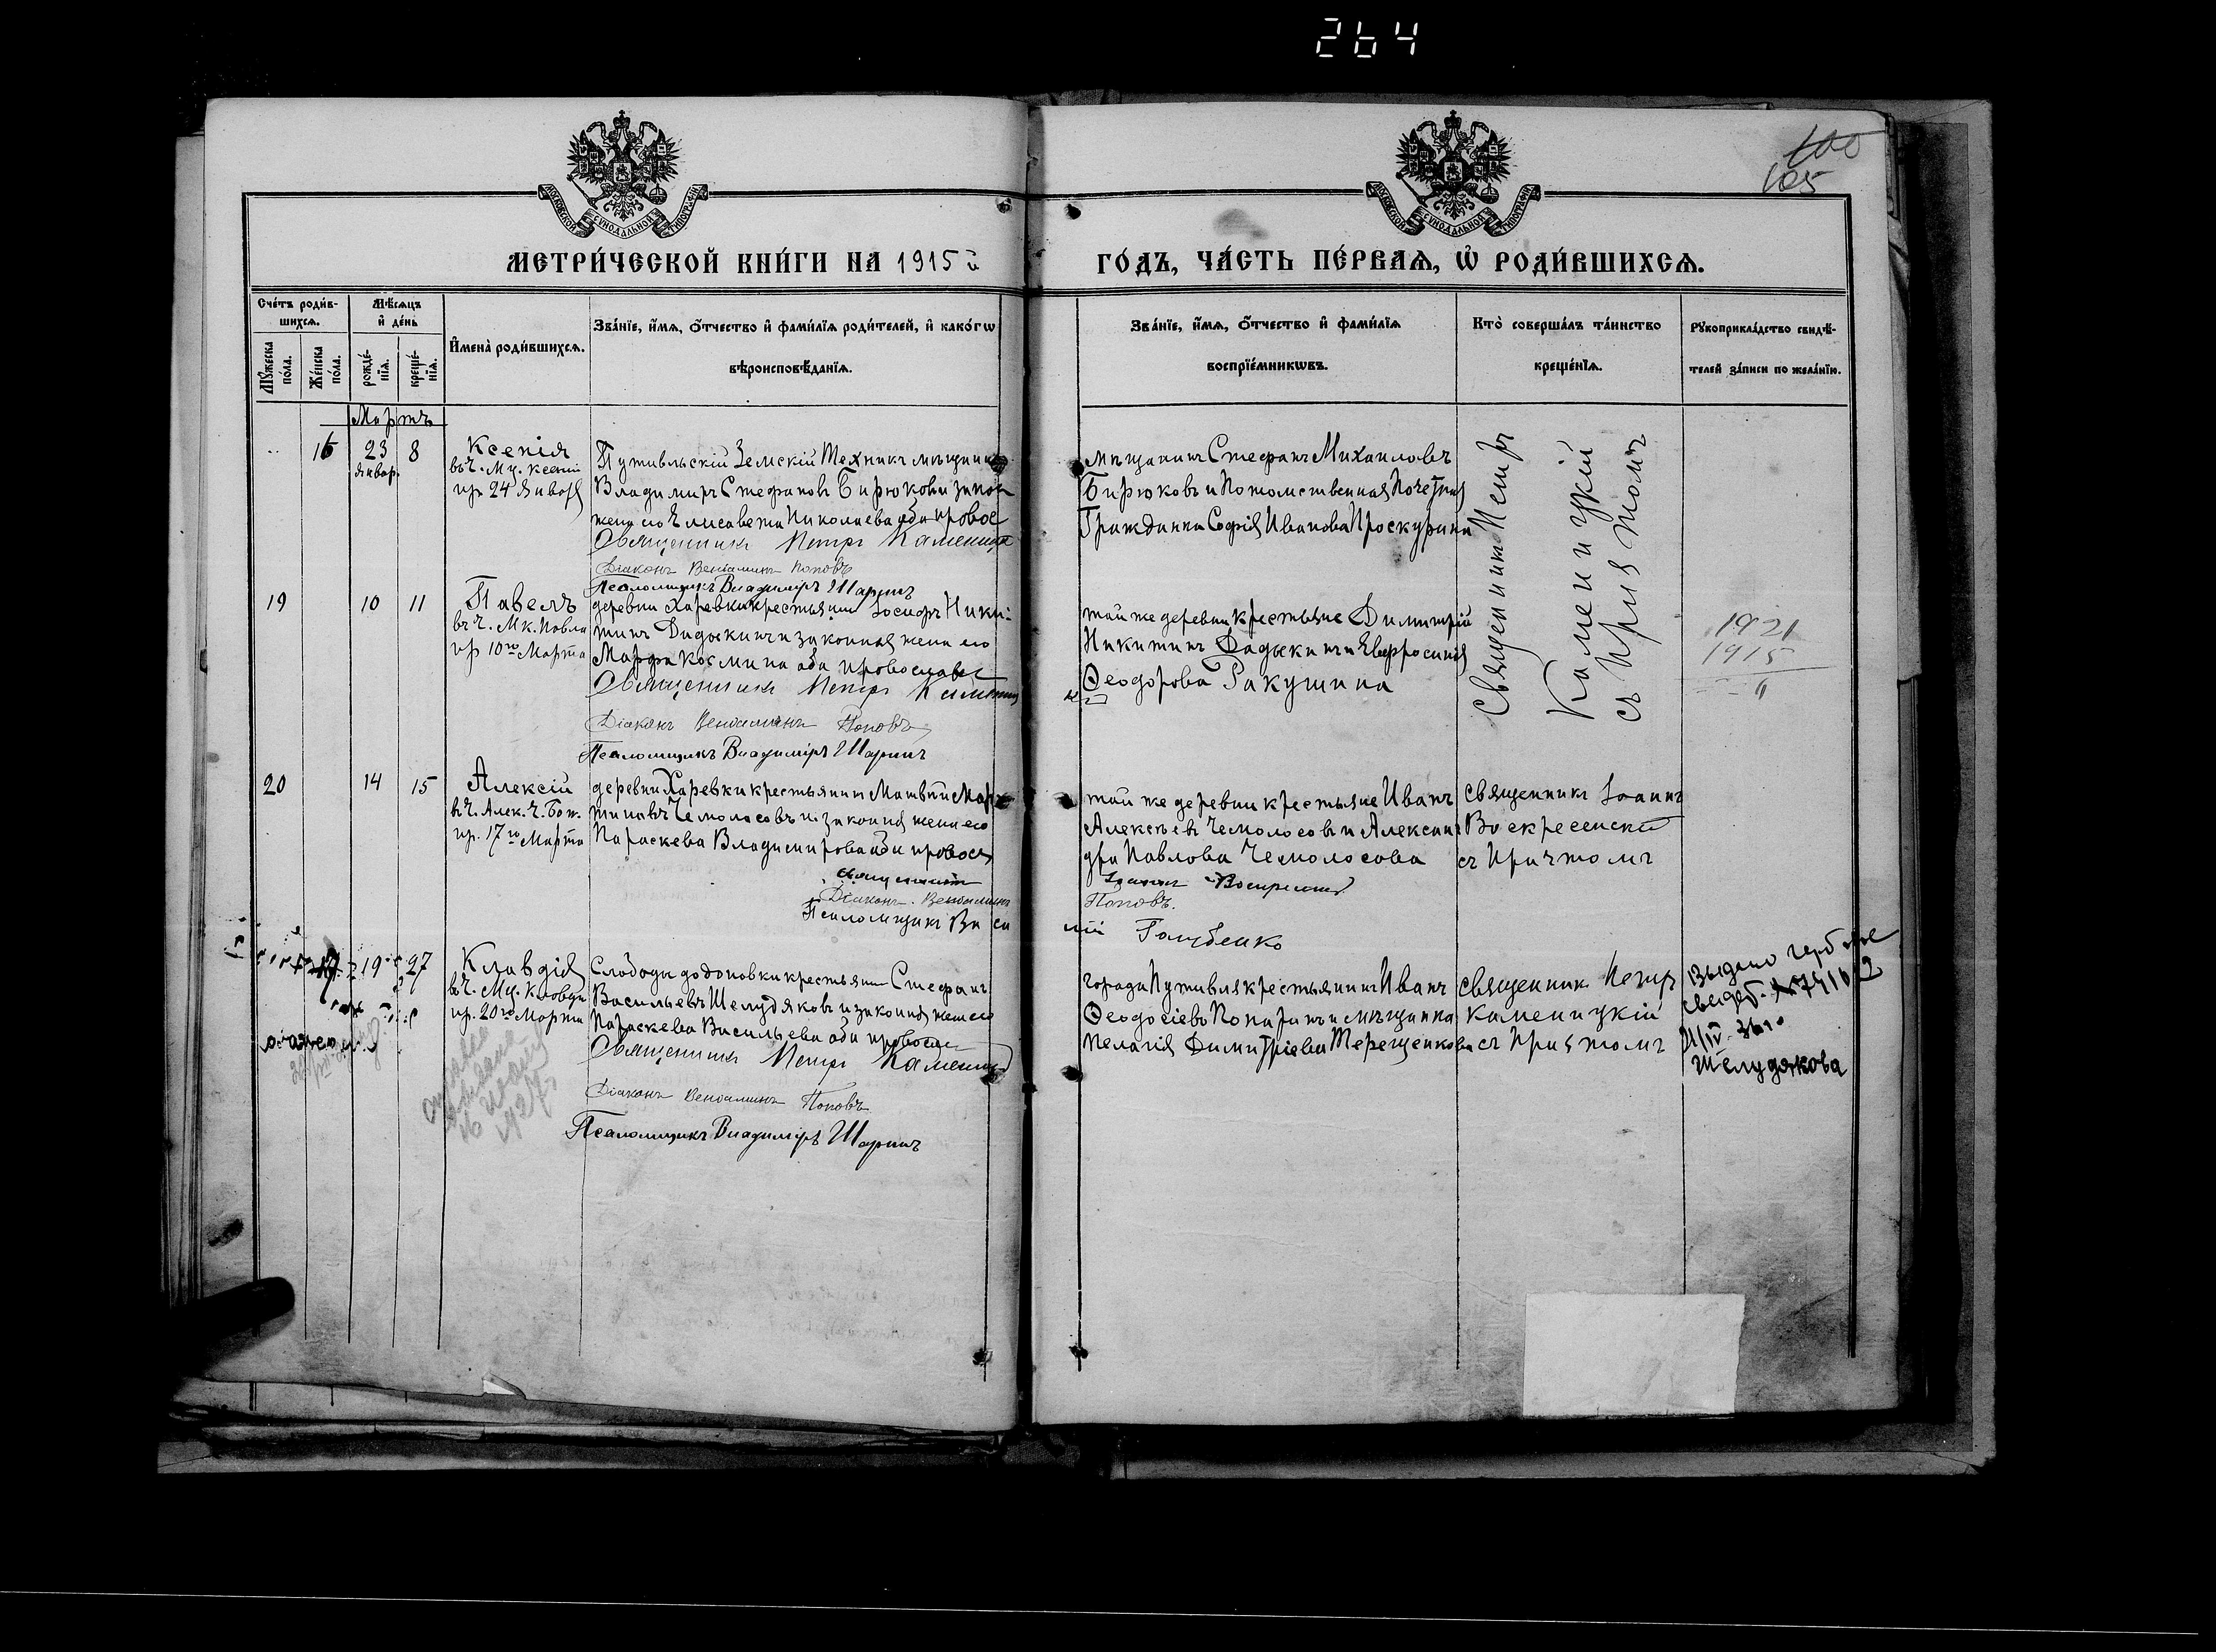 264
100
105
МОСКОВСКОЙ СѴНОДАЛЬНОЙ ТИПОГРАФІИ
МОСКОВСКОЙ СѴНОДАЛЬНОЙ ТИПОГРАФІИ
МЕТРИ́ЧЕСКОЙ КНИ́ГИ НА 1915й
ГО́ДЪ, ЧА́СТЬ ПЕ́РВАѦ, Ѡ҆ РОДИ́ВШИХСѦ.
Сче́тъ роди́в-
шихсѧ.
Мꙋ́жеска
по́ла.
Же́нска
по́ла.
Мѣ́сѧцъ
и҆ де́нь
рожде́-
нїѧ.
креще́-
нїѧ.
И҆мена̀ роди́вшихсѧ.
Зва́нїе, и҆́мѧ, ѻ҆́тчество и҆ фами́лїѧ роди́телей, и҆ како́гѡ
вѣроисповѣ́данїѧ.
Зва́нїе, и҆́мѧ, ѻ҆́тчество и҆ фами́лїѧ
воспрїе́мникѡвъ.
Кто̀ соверша́лъ та́инство
креще́нїѧ.
Рꙋкоприкла́дство свидѣ́-
телей за́писи по жела́нїю.
Мартъ
16 23 8
январ.
Ксенія
въ ч. Му. Ксеніи
пр. 24 Января
Путивльскій Земскій Техникъ мѣщанинъ
Владимиръ Стефановъ Бирюковъ и закон
жена его Елисавета Николаева оба правос
Священникъ Петръ Каменицкій
Діаконъ Веніаминъ Поповъ
Псаломщикъ Владиміръ Шаринъ
мѣщанинъ Стефанъ Михаиловъ
Бирюковъ и Потомственная Почетная
Гражданка Софія Иванова Проскурина
Священникъ Петръ
Каменицкій
съ Причтомъ
19 10 11
Павелъ
въ ч. Мк. Павла
пр 10го Марта
деревни Харевки крестьянинъ Іосифъ Ники-
тинъ Дадыкинъ и законная жена его
Марфа Космина оба православ
Священникъ Петръ Каменицкій
Діаконъ Веніаминъ Поповъ
Псаломщикъ Владиміръ Шаринъ
той же деревни крестьяне Димитрій
Никитинъ Дадыкинъ и Евфросинія
Ѳеодорова Ракушина
1921
1915
6
20 14 15
Алексій
въ ч. Алек. Ч. Бож.
пр. 17го Марта
деревни Харевки крестьянинъ Матвѣй Мар-
тиновъ Чемолосовъ и законная жена его
Параскева Владимирова оба правосл
Священникъ Іоаннъ Воскресенскій
Діаконъ Веніаминъ Поповъ.
Псаломщикъ Василій Голубенко
той же деревни крестьяне Иванъ
Алексѣевъ Чемолосовъ и Алексан-
дра Павлова Чемолосова
Священникъ Іоаннъ
Воскресенскій
съ Причтомъ
17 19 27
Клавдія
въ ч. Му. Клавдіи
пр. 20го Марта
Слободы Додоновки крестьянинъ Стефанъ
Васильевъ Шелудяковъ и законная жена его
Параскева Васильева оба правосл
Священникъ Петръ Каменицкій
Діаконъ Веніаминъ Поповъ
Псаломщикъ Владиміръ Шаринъ
города Путивля крестьянинъ Иванъ
Ѳеодосіевъ Понаринъ и мѣщанка
Пелагія Димитріева Терещенкова
Священникъ Петръ
Каменицкій
съ Причтомъ
Выдано гербовое
свидет.
Шелудякова
1927